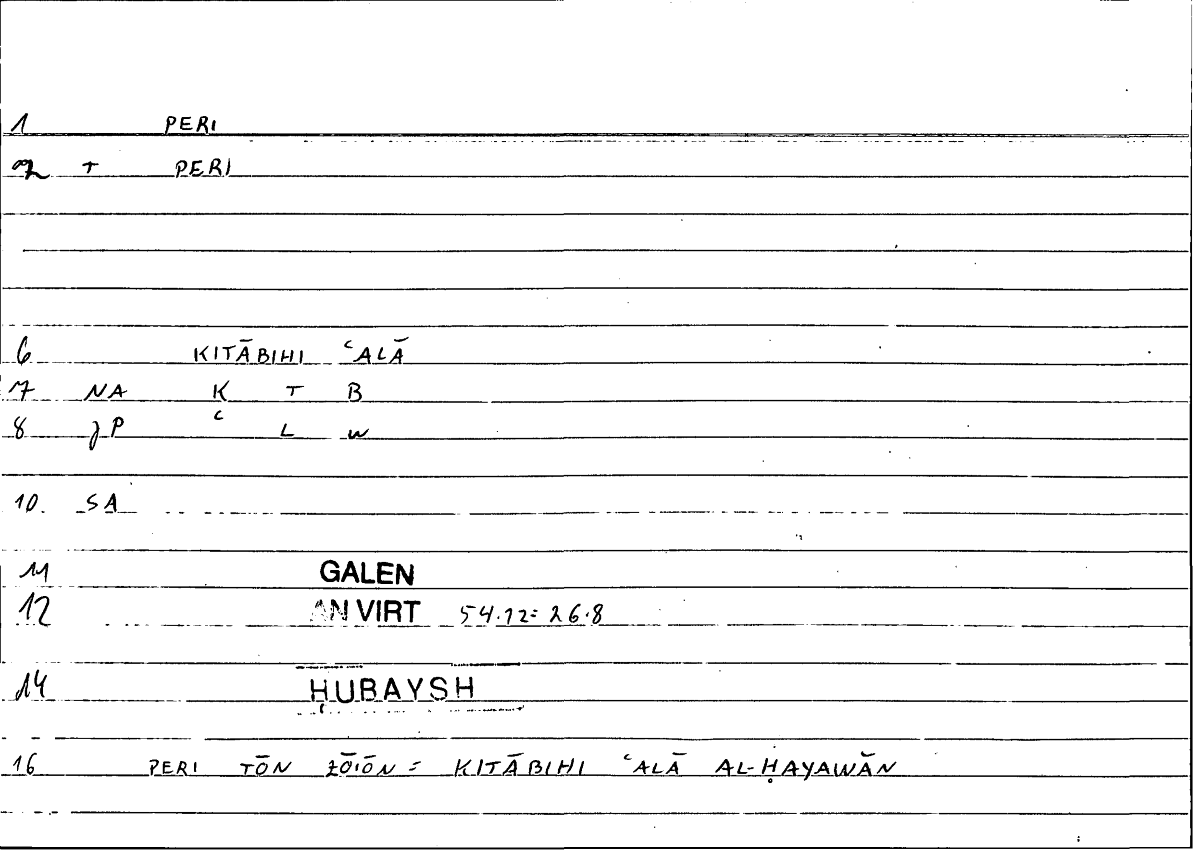 1 PERI
2 T PERI
6 KITĀBIHI ʿALĀ
7 NA K T B
8 JP ʿ L W
10. SA
11 GALEN
12 AN VIRT 54.12=26.8
14 ḤUBAYSH
16 PERI TŌN ZŌIŌN = KITĀBIHI ʿALĀ AL-ḤAYAWĀN